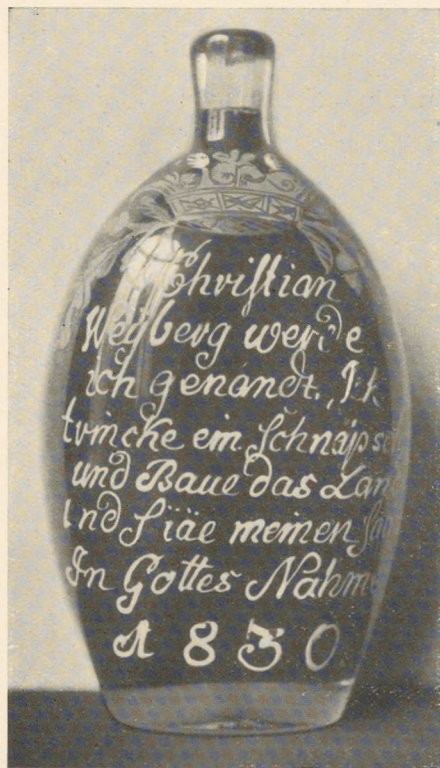 Christian
Wegberg werde
ich genandt. Ik
trincke ein Schnäps
und Baue das Lan
und Siäe meinen
In Gottes Nahme
1830